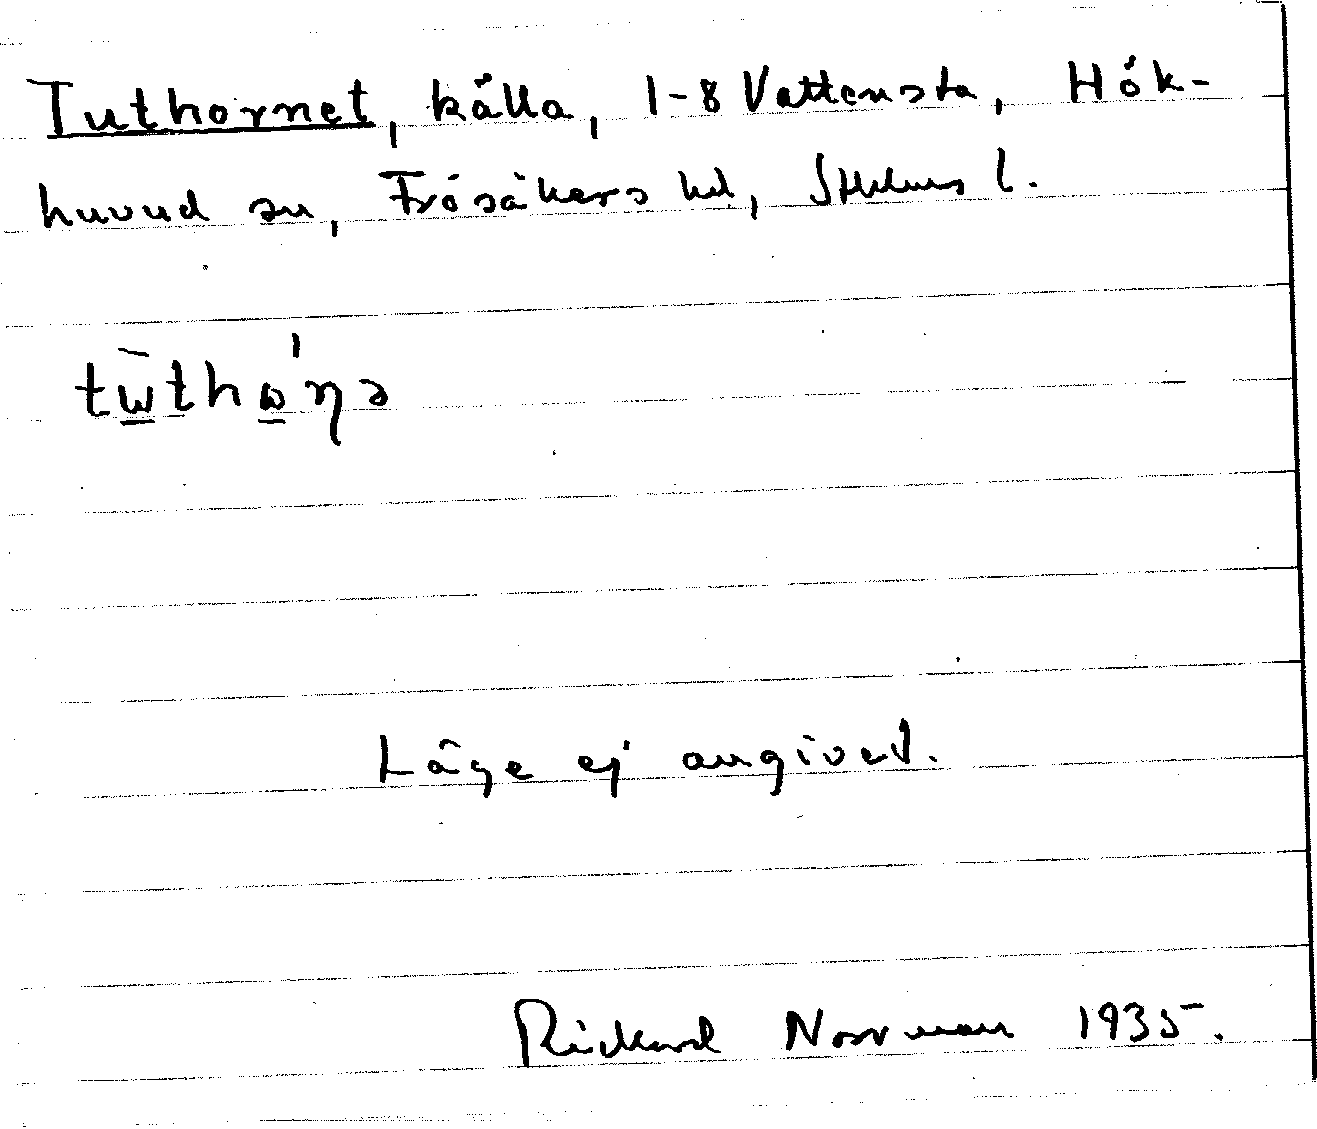 Tuthornet, källa, 1-8 Vattensta, Hök-
huvud sn, Frösåkers hd, Sthlms l.
tɯ̀thɷ'ɳə
Läge ej angivet.
Rickard Norrman 1935.